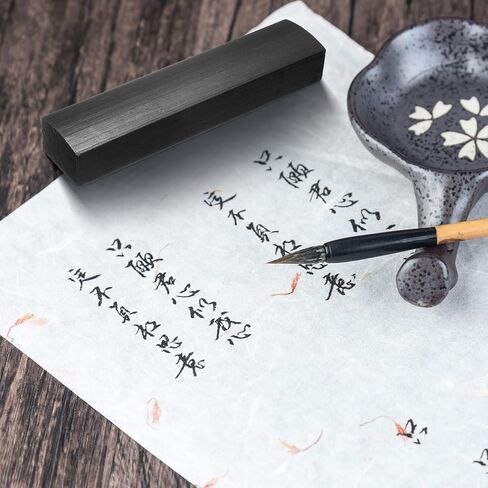 只願君心似
定不負相思意
只願君心似我心
定不負相思意
只